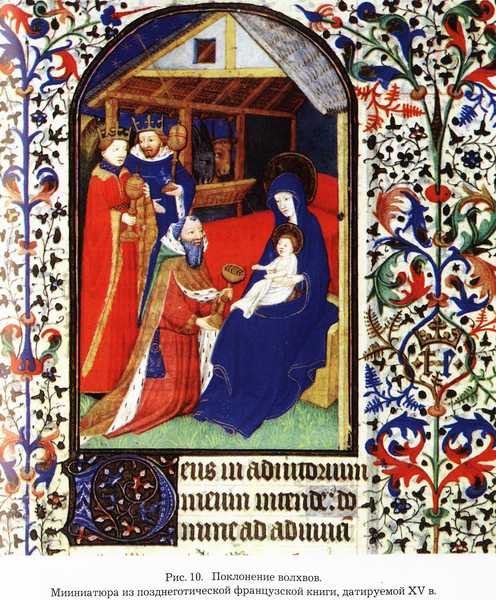 Deus in adiutorium
meum intende: do
mine ad adiuuā
Рис. 10. Поклонение волхвов.
Мииниатюра из позднеготической французской книги, датируемой XV в.